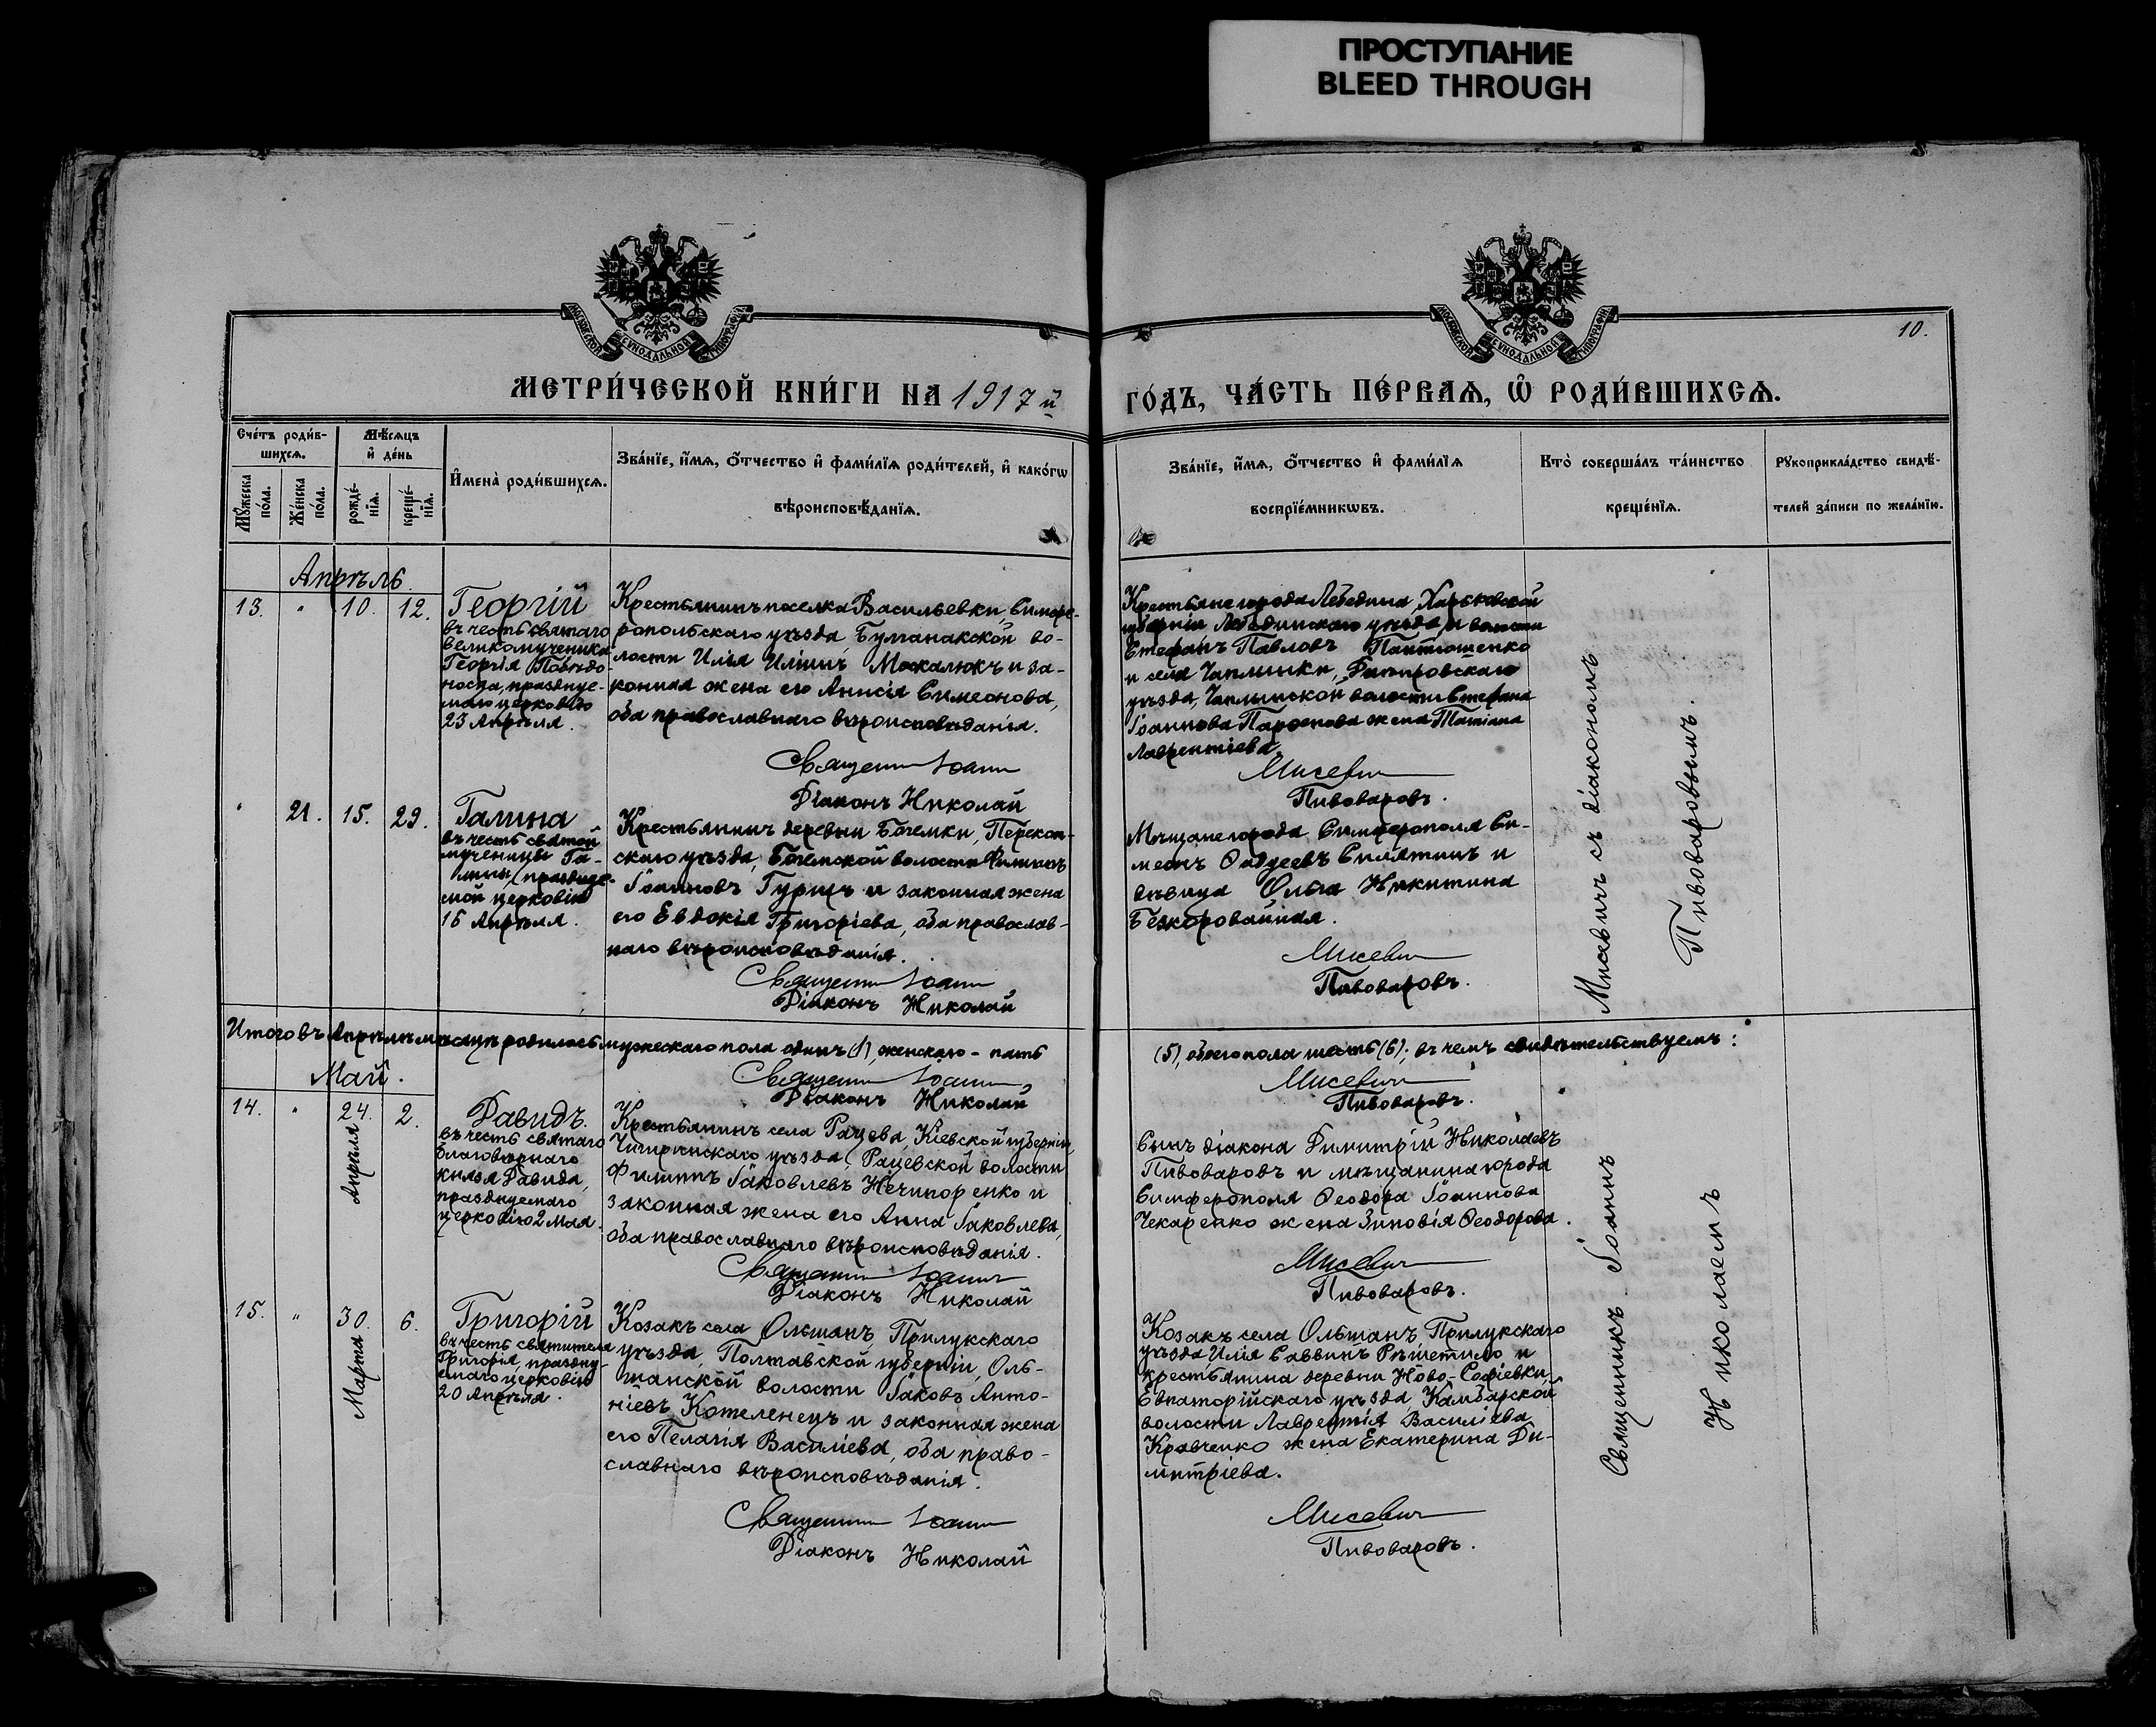 ПРОСТУПАНИЕ
BLEED THROUGH
10.
МЕТРИ́ЧЕСКОЙ КНИ́ГИ НА 1917 й
ГО́ДЪ, ЧА́СТЬ ПЕ́РВАѦ, Ѡ҆ РОДИ́ВШИХСѦ.
Сче́тъ роди́в-
шихсѧ.
Мѣ́сѧцъ
и҆ де́нь
Мꙋ́жеска
по́ла.
Же́нска
по́ла.
рожде́-
нїѧ.
креще́-
нїѧ.
И҆мена̀ роди́вшихсѧ.
Зва́нїе, и҆́мѧ, ѻ҆́тчество и҆ фами́лїѧ роди́телей, и҆ како́гѡ
вѣроисповѣ́данїѧ.
Зва́нїе, и҆́мѧ, ѻ҆́тчество и҆ фами́лїѧ
воспрїе́мникѡвъ.
Кто̀ соверша́лъ та́инство
креще́нїѧ.
Рꙋкоприкла́дство свидѣ́-
телей за́писи по жела́нїю.
Апрѣль.
13. " 10. 12.
Георгій
въ честь святаго
великомученика
Георгія Побѣдо-
носца, праздنуе-
маго церковію
23 Апрѣля.
Крестьянинъ поселка Васильевки, Симфе-
ропольскаго уѣзда, Булганакской во-
лости Илія Иліинъ Мокалюкъ и за-
конная жена его Анисія Симеонова,
оба православнаго вѣроисповѣданія.
Священникъ Іоаннъ
Діаконъ Николай
Крестьяне города Лебедина, Харьковской
губерніи Лебединскаго уѣзда и волости
Стефанъ Павловъ Пантюшенко
и села Чаплинки, Днѣпровскаго
уѣзда, Чаплинской волости Стефана
Іоаннова жена Татіана
Лаврентіева.
Мисевич
Пивоваровъ.
" 21. 15. 29.
Галина
въ честь святой
мученицы Га-
лины, праздنуе-
мой церковію
16 Апрѣля.
Крестьянинъ деревни Богемки, Перекоп-
скаго уѣзда, Богемской волости Филиппъ
Іоанновъ Гурщъ и законная жена
его Евдокія Григоріева, оба православ-
наго вѣроисповѣданія.
Священникъ Іоаннъ
Діаконъ Николай
Мѣщане города Симферополя Си-
меонъ Фаддеевъ Силятинъ и
дѣвица Ольга Никитина
Безкоровайная.
Мисевич
Пивоваровъ.
Мисевичъ съ діакономъ
Пивоваровымъ.
Итого въ Апрѣлѣ мѣсяцѣ родилось мужескаго пола одинъ (1), женскаго - пять
(5), обоего пола шесть (6); въ чемъ свидѣтельствуемъ:
Священникъ Іоаннъ
Діаконъ Николай
Мисевич
Пивоваровъ.
Май.
14. " 24. Апрѣля 2.
Давидъ.
въ честь святаго
благовѣрнаго
князя Давида,
празднуемаго
церковію 2 Мая.
Крестьянинъ села Рацева, Кіевской губерніи,
Чигиринскаго уѣзда, Рацевской волости
Филиппъ Іаковлевъ Нечипоренко и
законная жена его Анна Іаковлева,
оба православнаго вѣроисповѣданія.
Священникъ Іоаннъ
Діаконъ Николай
Сынъ діакона Димитрій Николаевъ
Пивоваровъ и мѣщанина города
Симферополя Ѳеодора Іоаннова
Чекаренко жена Зиновія Ѳеодорова.
Мисевич
Пивоваровъ.
15. " 30. Марта 6.
Григорій
въ честь святителя
Григорія, праздну-
емаго церковію
20 Апрѣля.
Козакъ села Ольшанъ, Прилукскаго
уѣзда, Полтавской губерніи, Оль-
шанской волости Іаковъ Анто-
ніевъ Котеленецъ и законная жена
его Пелагія Василіева, оба право-
славнаго вѣроисповѣданія.
Священникъ Іоаннъ
Діаконъ Николай
Козакъ села Ольшанъ, Прилукскаго
уѣзда Илія Саввинъ Рѣшетило и
крестьянина деревни Ново-Софіевки,
Евпаторійскаго уѣзда, Камбарской
волости Лаврентія Василіева
Кравченко жена Екатерина Ди-
митріева.
Мисевич
Пивоваровъ.
Священникъ Іоаннъ
Николаемъ